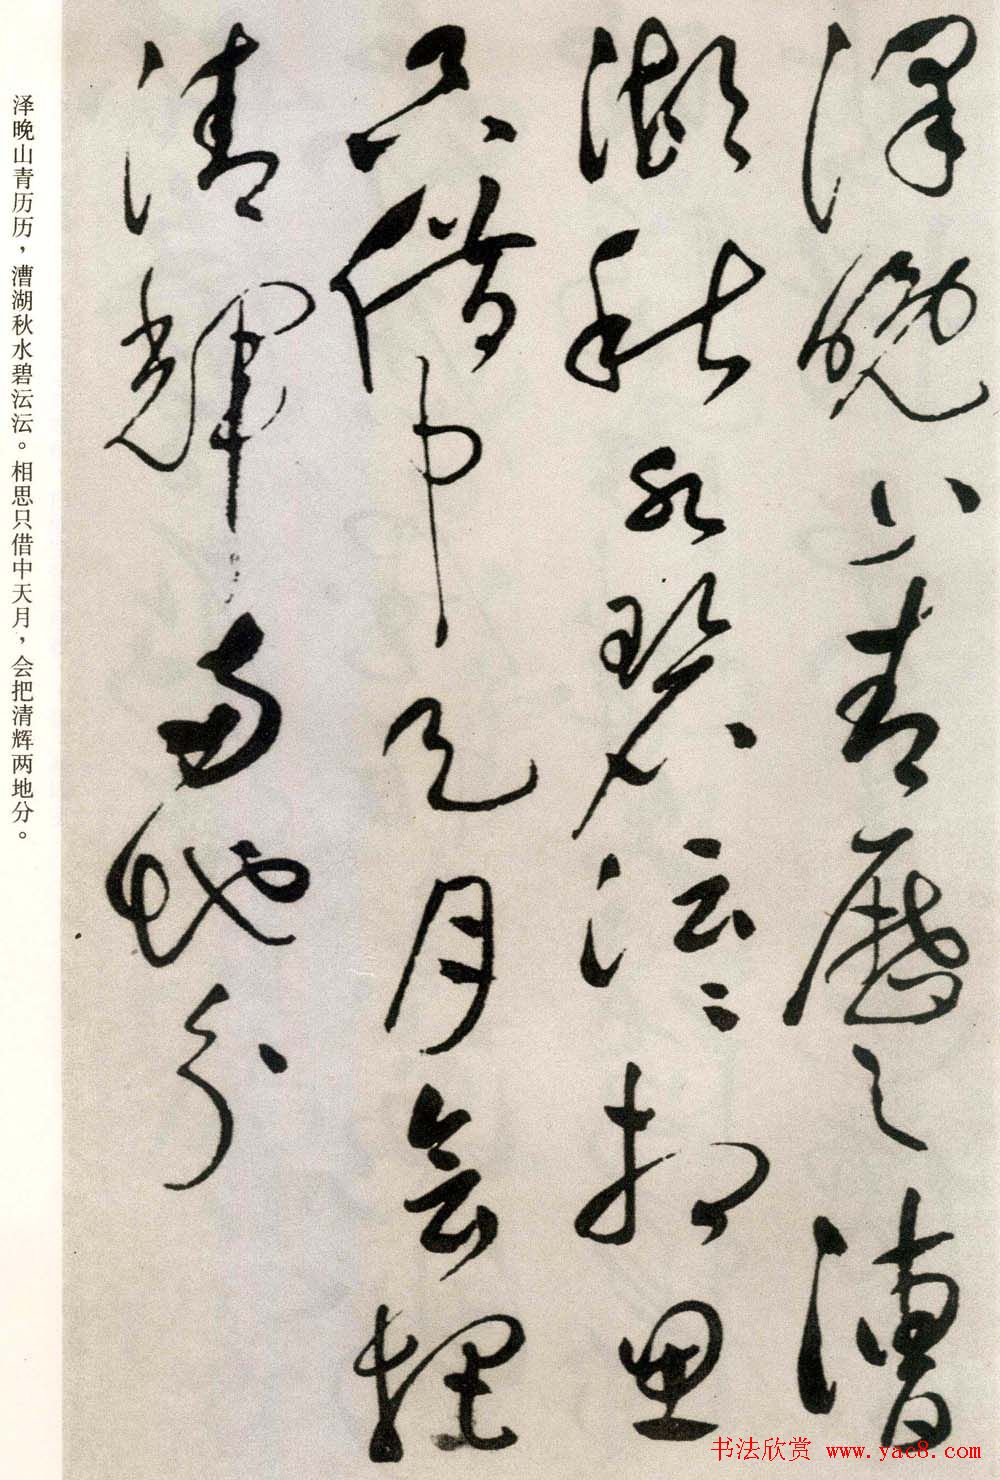 澤晚山青歷々漕
湖秋水碧沄〻相思
只借中天月會把
清輝兩地分
泽晚山青历历，漕湖秋水碧沄沄。相思只借中天月，会把清辉两地分。
书法欣赏 www.yac8.com